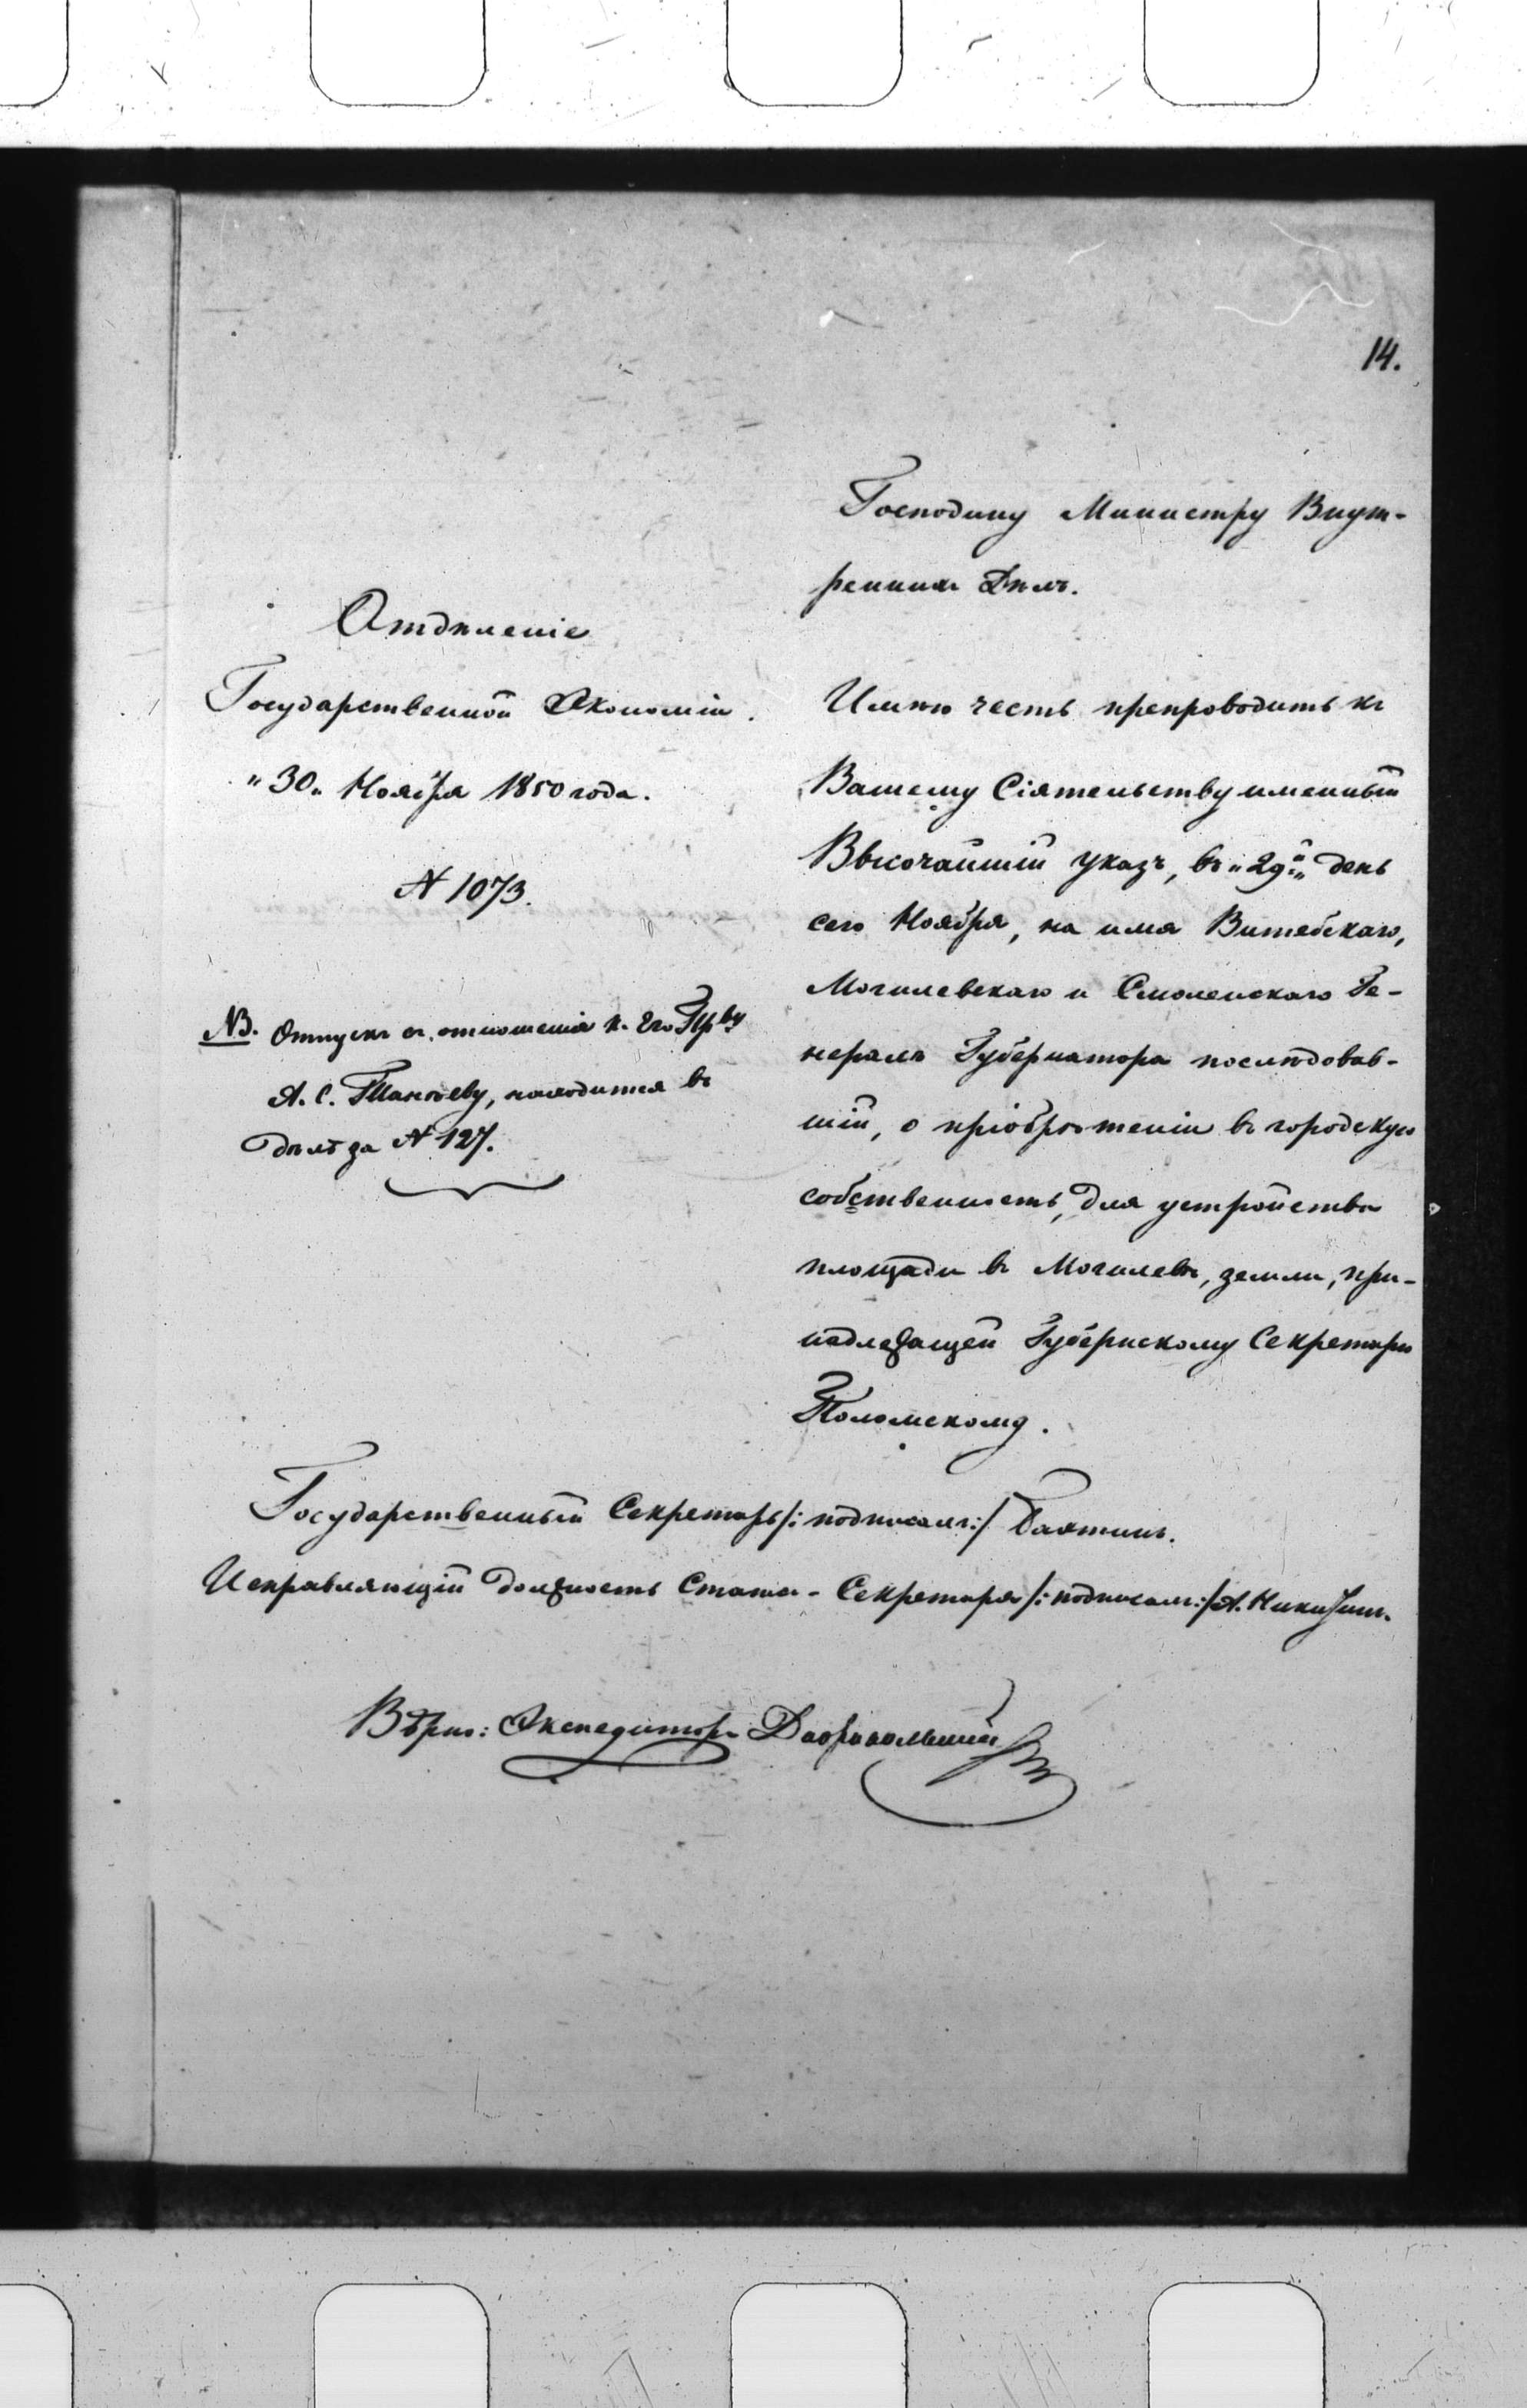 14.
Господину Министру Внут-
реннихъ Дѣлъ.
Отдѣленіе
Государственной Экономіи.
„30„ Ноября 1850 года.
№ 1073.
NB. Отпускъ съ отношенія къ Его Пр–ву
А. С. Танѣеву, находится въ
дѣлѣ за № 127.
Имѣю честь препроводить къ
Вашему Сіятельству именный
Высочайшій указъ, въ „29й„ день
сего Ноября, на имя Витебскаго,
Могилевскаго и Смоленскаго Ге-
нералъ Губернатора послѣдовав-
шій, о пріобрѣтеніи въ городскую
собственность, для устройства
площади въ Могилевѣ, земли, при-
надлежащей Губернскому Секретарю
Поломскому.
Государственный Секретарь /: подписалъ :/ Бахтинъ.
Исправляющій должность Статсъ-Секретаря /: подписалъ :/ А. Никитинъ.
Вѣрно: Экспедиторъ